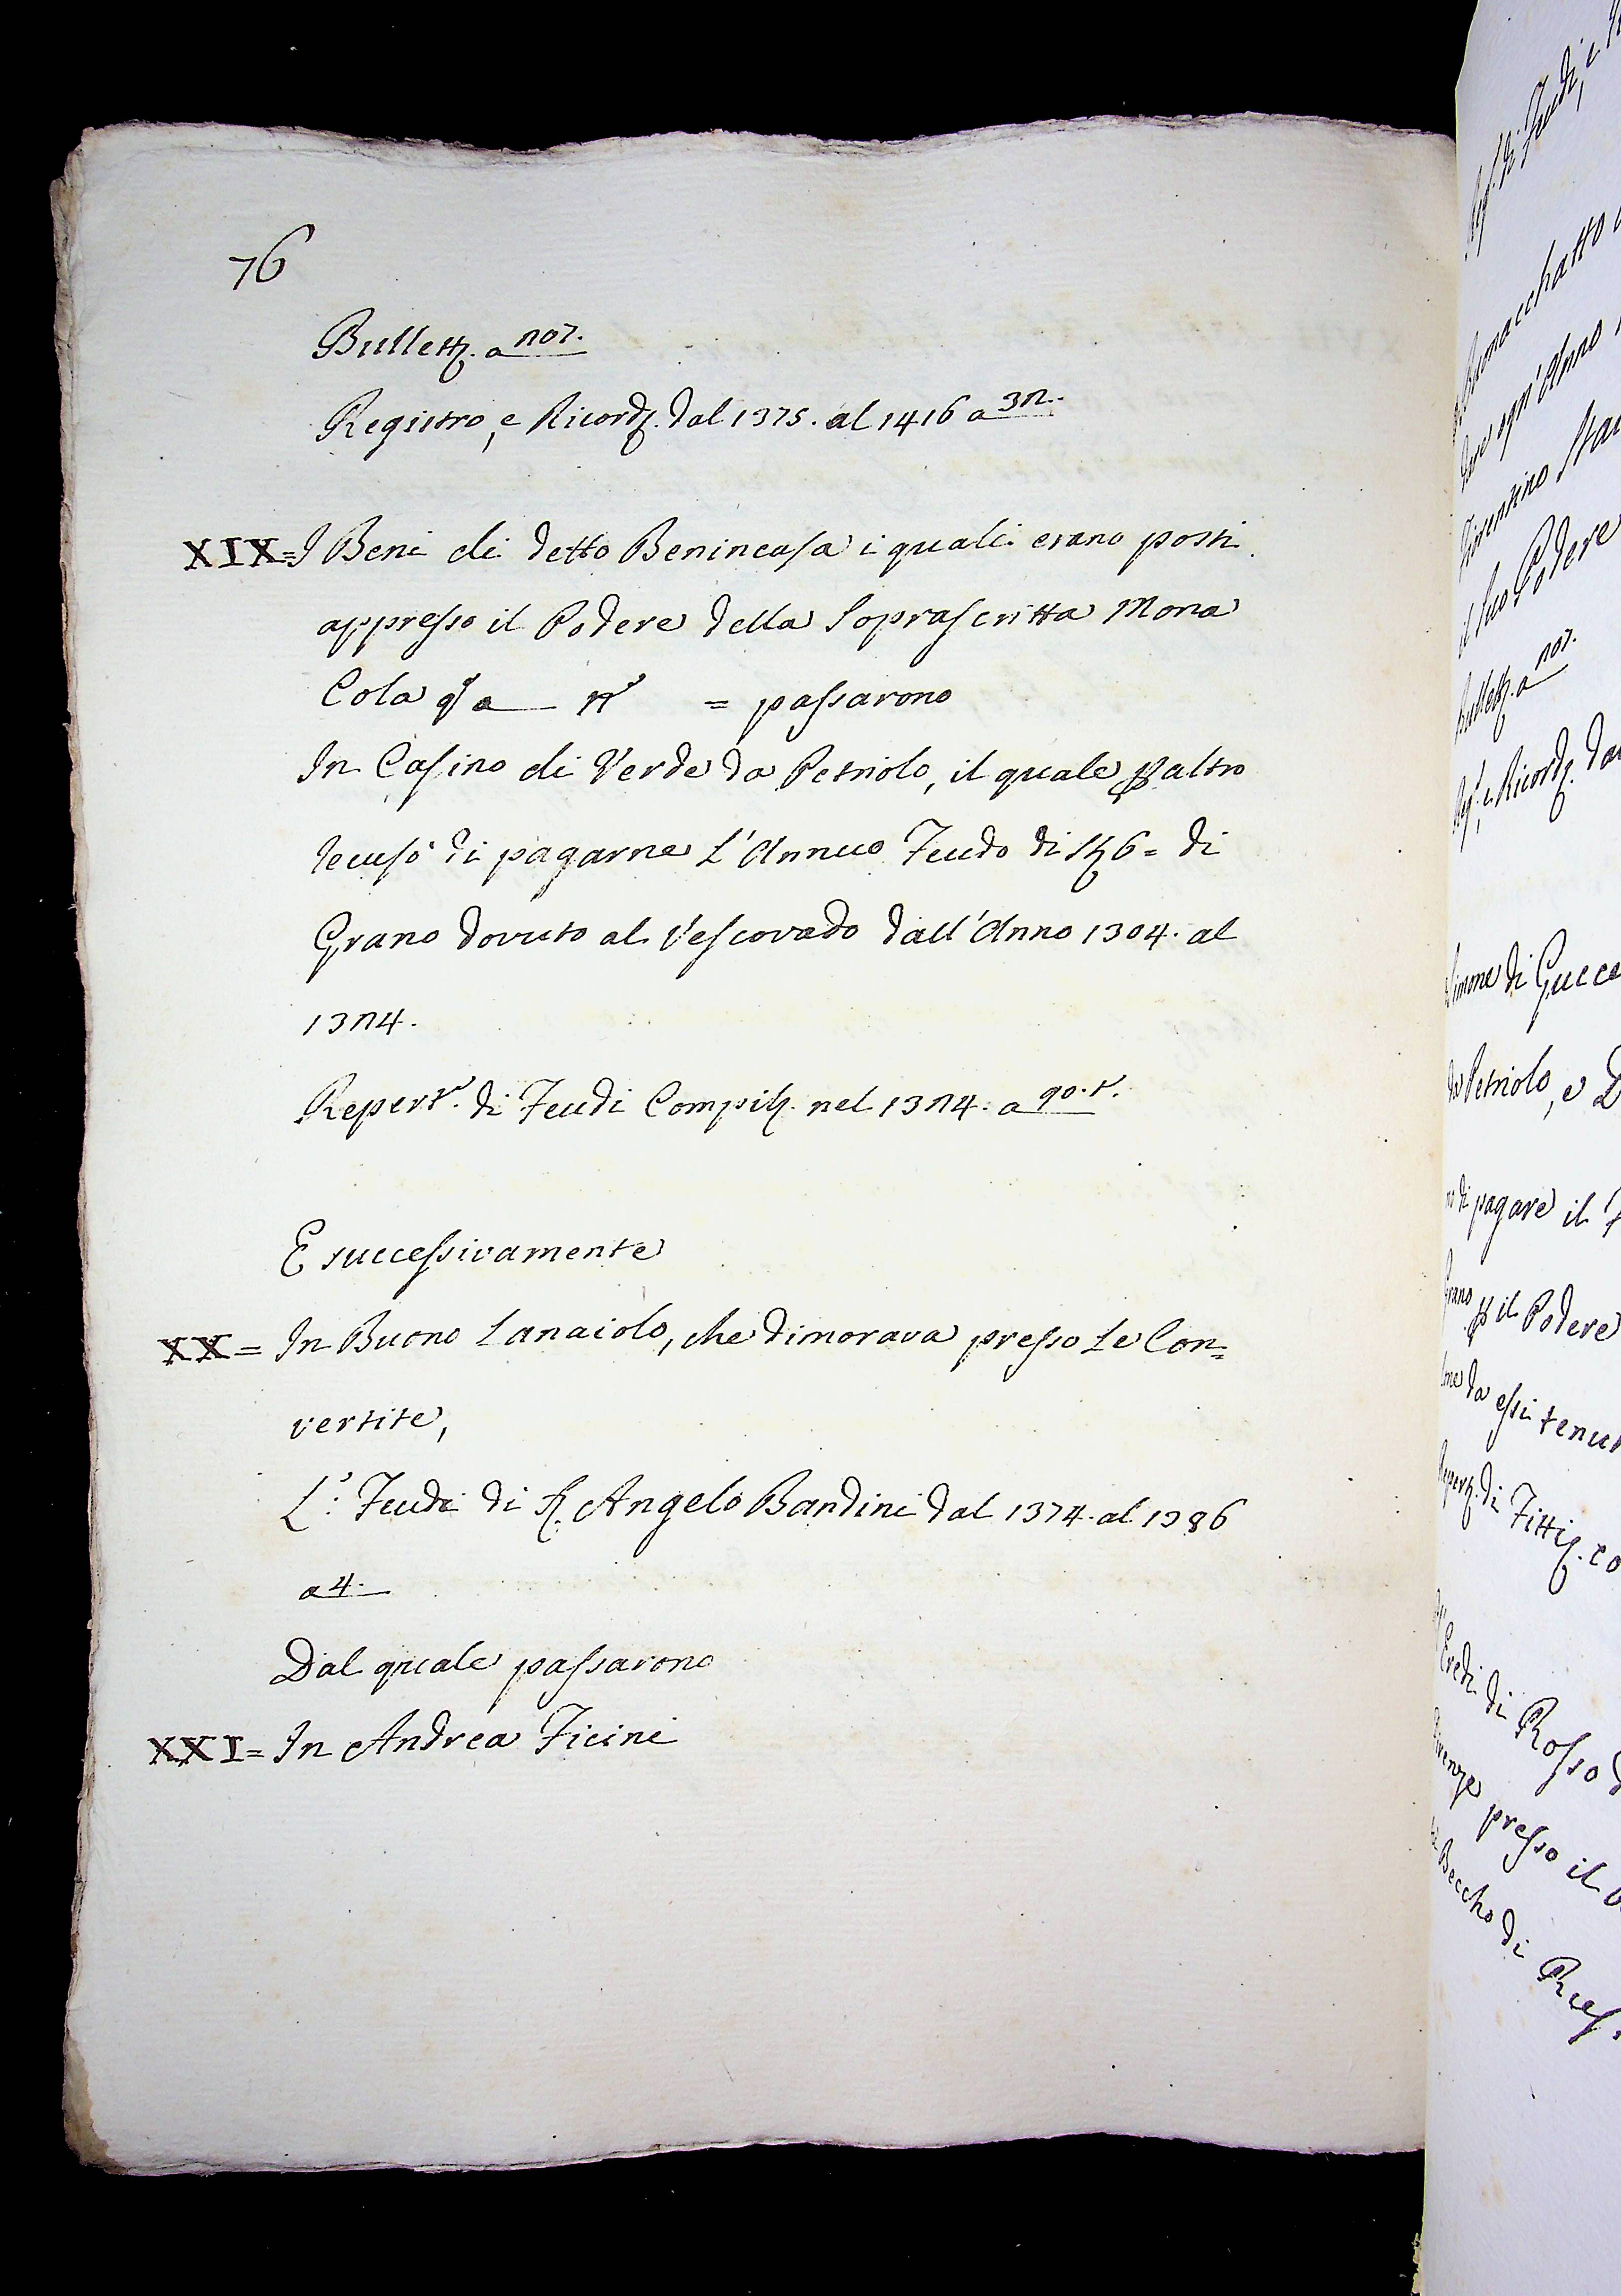 76
Bullett. a 207.
Registro, e Ricord. dal 1375. al 1416 a 32.
XIX = I Beni di detto Benincasa i quali erano posti
appresso il Podere della Soprascritta Mona
Cola q. a n.° = passarono
In Casino di Verde da Petriolo, il quale p altro
recusò di pagarne L'Annuo Feudo di St. 6 = di
Grano dovuto al Vescovado dall'Anno 1304. al
1324.
Repert.° di Feudi Compil. nel 1324. a 90. t.
E successivamente
XX = In Buono Lanaiolo, che dimorava presso Le Con=
vertite,
L.° Feudi di S. Angelo Bandini dal 1374. al 1386
a 4.
Dal quale passarono
XXI = In Andrea Ficini
di Feudi, e
ogn'Anno
il suo Podere
Bullett. a 207.
Reg. e Ricord. da
Simone di Gucce
da Petriolo, e
di pagare il
Grano p il Podere
da essi tenut
Repert. di Fitti
Eredi di Rosso
presso il
Beccho di